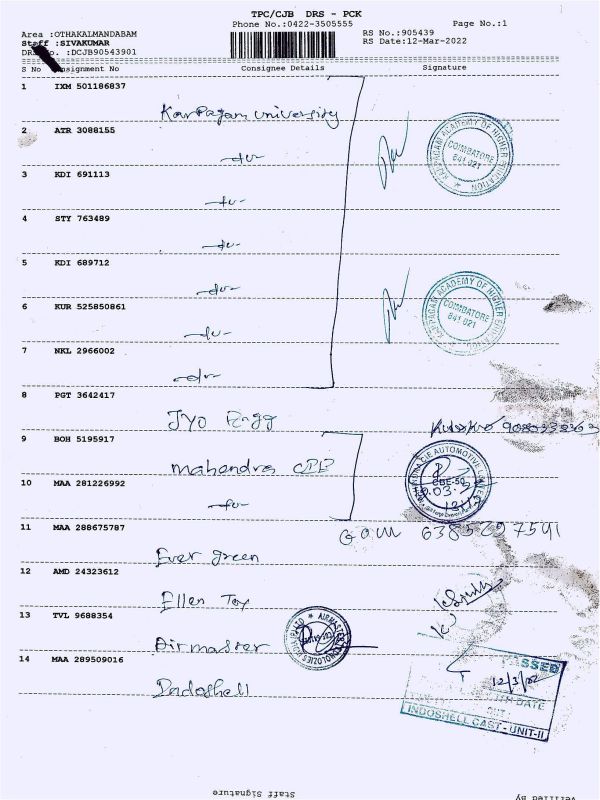 TPC/CJB DRS - PCK
Phone No.:0422-3505555
Page No.:1
Area :OTHAKALMANDABAM
RS No.:905439
Staff :SIVAKUMAR
RS Date:12-Mar-2022
:DCJB90543901
S No onsignment No Consignee Details Signature
1 IXM 501186837
Karpagam University
2 ATR 3088155
-do-
3 KDI 691113
-do-
4 STY 763489
-do-
5 KDI 689712
-do-
6 KUR 525850861
-do-
7 NKL 2966002
-do-
KARPAGAM ACADEMY OF HIGHER EDUCATION
COIMBATORE
641 021
KARPAGAM ACADEMY OF HIGHER EDUCATION
COIMBATORE
641 021
8 PGT 3642417
Jyo Engg
9 BOH 5195917
Mahendra CBE
10 MAA 281226992
-do-
AUTOMOTIVE
CBE-50
11 MAA 288675787
6385297591
Ever green
12 AMD 24323612
Ellen Toy
13 TVL 9688354
Airmaster
14 MAA 289509016
Indoshell
PASSED
12/3/22
DATE
INDOSHELL CAST - UNIT-II
Staff Signature
Verified By